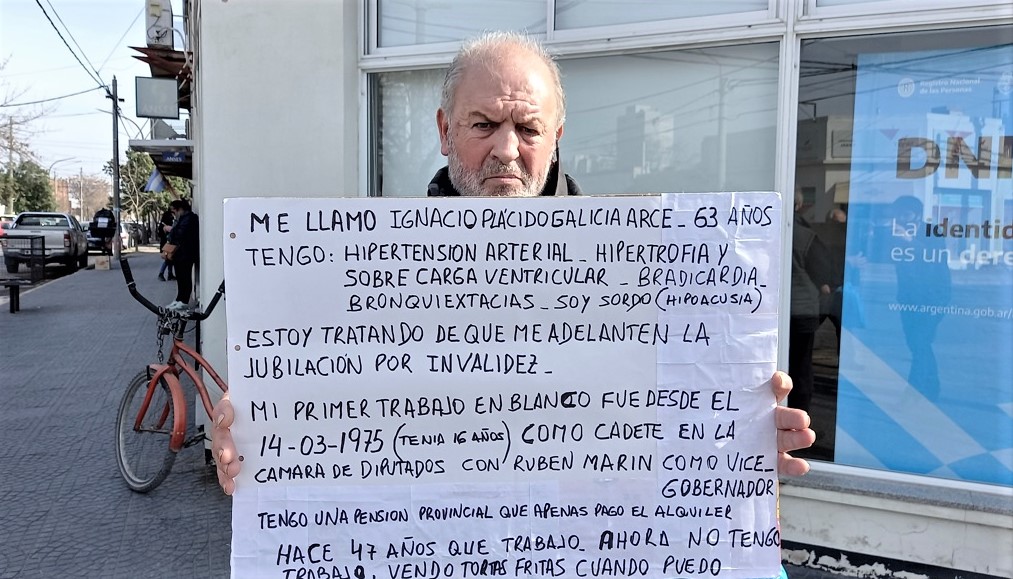 ME LLAMO IGNACIO PLACIDO GALICIA ARCE_ 63 AÑOS
TENGO: HIPERTENSION ARTERIAL_ HIPERTROFIA Y
SOBRE CARGA VENTRICULAR _ BRADICARDIA_
BRONQUIEXTACIAS_ SOY SORDO (HIPOACUSIA)
ESTOY TRATANDO DE QUE ME ADELANTEN LA
JUBILACIÓN POR INVALIDEZ_
MI PRIMER TRABAJO EN BLANCO FUE DESDE EL
14-03-1975 (TENIA 16 AÑOS) COMO CADETE EN LA
CAMARA DE DIPUTADOS CON RUBEN MARIN COMO VICE_
GOBERNADOR
TENGO UNA PENSION PROVINCIAL QUE APENAS PAGO EL ALQUILER
HACE 47 AÑOS QUE TRABAJO_ AHORA NO TENGO
TRABAJO, VENDO TORTAS FRITAS CUANDO PUEDO
Registro Nacional
de las Personas
DNI
La identid
es un dere
www.argentina.gob.ar/